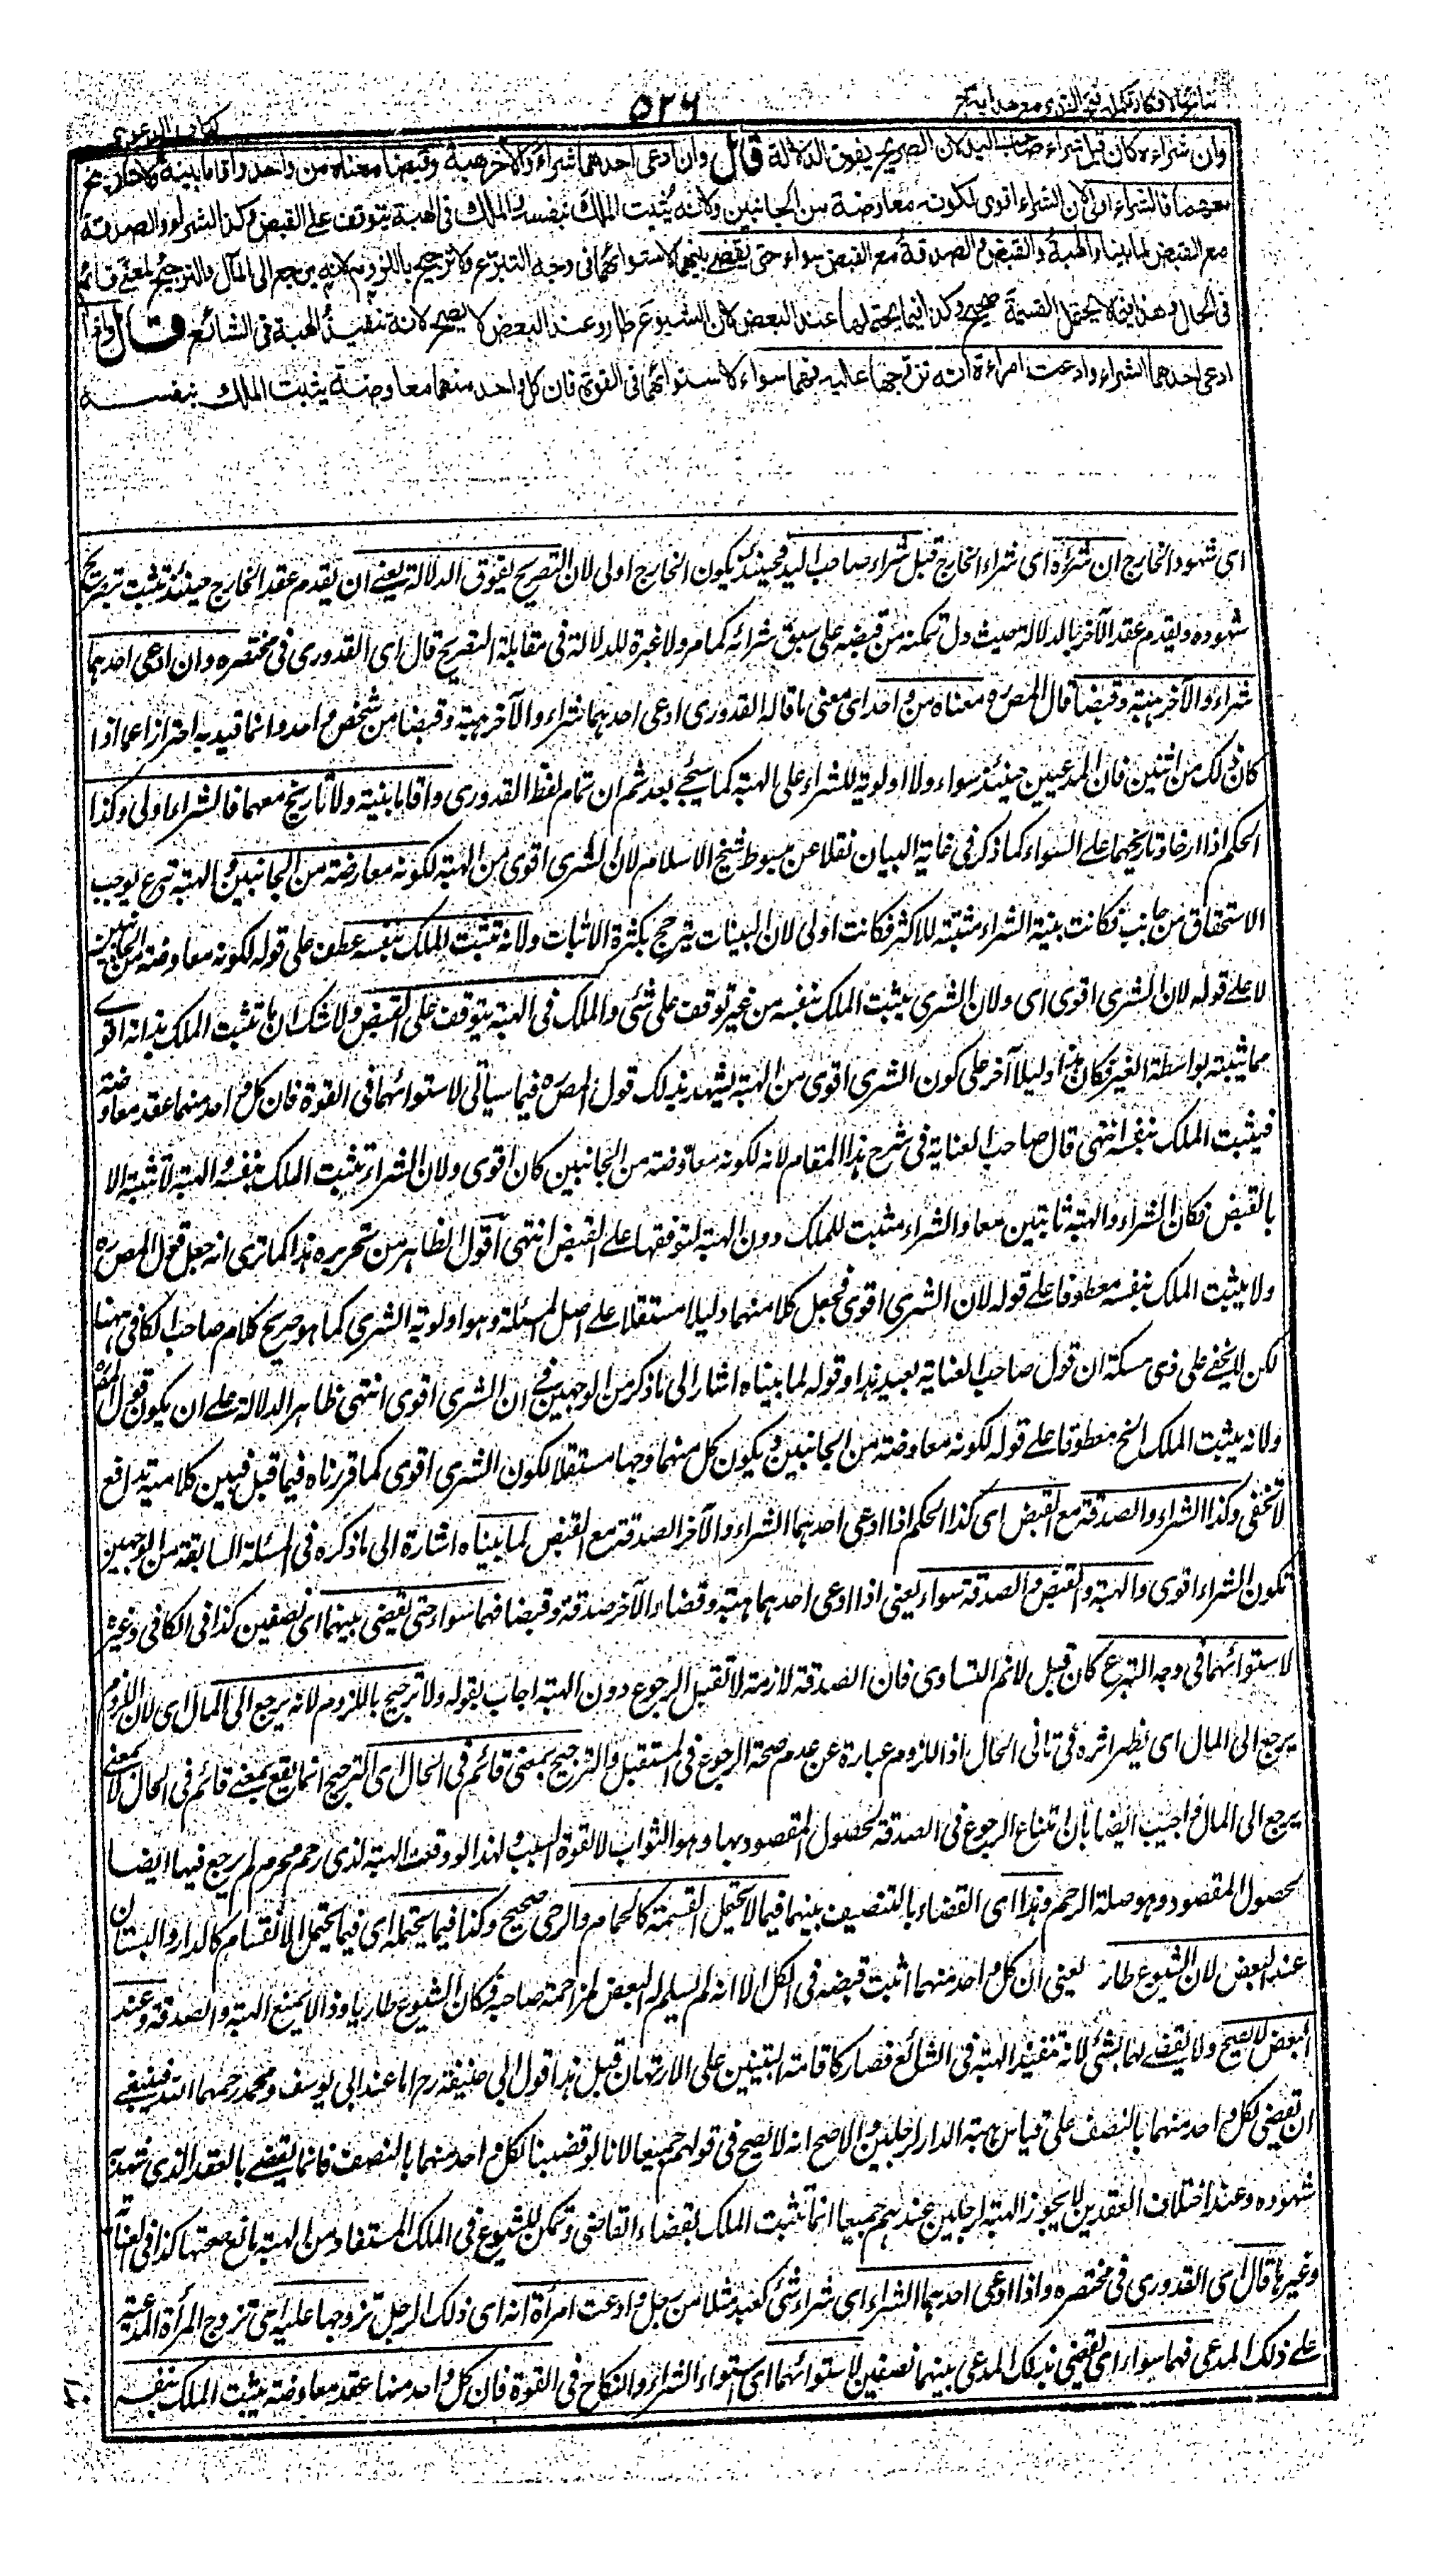 نتائج الافكار تكملة فتح القدير مع هداية ج
٥٢٦
كتاب الدعوى
وان شراءه كان قبل شراء صاحب اليد لان الصريح يفوق الدلالة قال وان ادعى احدهما شراء والآخر هبة وقبضا معناه من واحد واقاما بينة ولا تاريخ
معهما فالشراء اولى لان الشراء اقوى لكونه معاوضة من الجانبين ولانه يثبت الملك بنفسه والملك فى الهبة يتوقف على القبض وكذا الشراء والصدقة
مع القبض لما بينا والهبة والقبض والصدقة مع القبض سواء حتى يقضى بينهما لاستوائهما فى وجه التبرع ولا ترجيح باللزوم لانه يرجع الى المآل والترجيح لمعنى قائم
فى الحال وهذا فيما لا يحتمل القسمة صحيح وكذا فيما يحتملها عند البعض لان الشيوع طارو عند البعض لا يصح لانه تنفيذ الهبة فى الشائع قال واذا
ادعى احدهما الشراء وادعت امراءة انه تزوجها عليه فهما سواء لاستوائهما فى القوة فان كل واحد منهما معاوضة يثبت الملك بنفسه
اى شهود الخارج ان شرائه اى شراء الخارج قبل شراء صاحب اليد فحينئذ يكون الخارج اولى لان التصريح يفوق الدلالة يعنى ان يقدم عقد الخارج حينئذ تثبت بتصريح
شهوده وتقدم عقد الآخر بالدلالة حيث دل تمكنه من قبضه على سبق شرائه كما مر ولا عبرة للدلالة فى مقابلة التصريح قال اى القدورى فى مختصره وان ادعى احدهما
شراء والآخر هبة وقبضا قال المصره معناه من واحد اى معنى ما قاله القدورى ادعى احدهما شراء والآخر هبة وقبضا من شخص واحد وانما قيد به احترازا عما اذا
كان ذلك من اثنين فان المدعيين حينئذ سواء ولا اولوية للشراء على الهبة كما سيجئ بعد ثم ان تمام لفظ القدورى واقاما بنية ولا تاريخ معهما فالشراء اولى وكذا
الحكم اذا ارخا وتاريخهما على السواء كما ذكر فى غاية البيان نقلا عن مبسوط شيخ الاسلام لان الشرى اقوى من الهبة لكونه معاوضة من الجانبين والهبة تبرع يوجب
الاستحقاق من جانب فكانت بينة الشراء مثبتة للاكثر فكانت اولى لان البينات تترجح بكثرة الاثبات ولانه تثبت الملك بنفسه عطف على قوله لكونه معاوضة من الجانبين
لا على قوله لان الشرى اقوى اى ولان الشرى يثبت الملك بنفسه من غير توقف على شئ والملك فى الهبة يتوقف على القبض ولا شك ان ما تثبت الملك بذاته اقوى
مما يثبته بواسطة الغير فكان هذا دليلا آخر على كون الشرى اقوى من الهبة يشهد بذلك قول المصره فيما سياتى لاستوائهما فى القوة فان كل واحد منهما عقد معاوضة
فيثبت الملك بنفسه انتهى قال صاحب العناية فى شرح هذا المقام لانه لكونه معاوضة من الجانبين كان اقوى ولان الشراء يثبت الملك بنفسه والهبة لا تثبته الا
بالقبض فكان الشراء والهبة ثابتين معا والشراء مثبت للملك دون الهبة لتوقفها على القبض انتهى اقول الظاهر من تحريره هذا كما ترى انه جعل قول المصره
ولا يثبت الملك بنفسه معطوفا على قوله لان الشرى اقوى فجعل كلا منهما دليلا مستقلا على اصل المسئلة وهو اولوية الشرى كما هو صريح كلام صاحب الكافى ههنا
لكن لا يخفى على ذى مسكة ان قول صاحب العناية بعيد هذا وقوله لما بيناه اشار الى ما ذكر من الوجهين فى ان الشرى اقوى انتهى ظاهر الدلالة على ان يكون قول المصره
ولانه يثبت الملك الخ معطوفا على قوله لكونه معاوضة من الجانبين ويكون كل منهما وجها مستقلا لكون الشرى اقوى كما قررناه فيما قبل فبين كلاميه تدافع
لا تخفى وكذا الشراء والصدقة مع القبض اى كذا الحكم اذا ادعى احدهما الشراء والآخر الصدقة مع القبض لما بيناه اشارة الى ما ذكره فى المسئلة السابقة من الوجهين
لكون الشراء اقوى والهبة والقبض والصدقة سواء يعنى اذا ادعى احدهما هبة وقبضا والآخر صدقة وقبضا فهما سواء حتى يقضى بينهما اى نصفين كذا فى الكافى وغيره
لاستوائهما فى وجه التبرع كان قيل لا نم التساوى فان الصدقة لازمة لا تقبل الرجوع دون الهبة اجاب بقوله ولا ترجيح باللزوم لانه يرجع الى المآل اى لان اللزوم
يرجع الى المآل اى يظهر اثره فى ثانى الحال اذ اللزوم عبارة عن عدم صحة الرجوع فى المستقبل والترجيح بمعنى قائم فى الحال اى الترجيح انما يقع بمعنى قائم فى الحال لا بمعنى
يرجع الى المآل واجيب ايضا بان امتناع الرجوع فى الصدقة لحصول المقصود بها وهو الثواب لا لقوة السبب ولهذا لو وقعت الهبة لذى رحم محرم لم يرجع فيها ايضا
لحصول المقصود وهو صلة الرحم وهذا اى القضاء بالتنصيف بينهما فيما لا يحتمل القسمة كالحمام والرحى صحيح وكذا فيما يحتمله اى فيما يحتمل الانقسام كالدار والبستان
عند البعض لان الشيوع طار يعنى ان كل واحد منهما اثبت قبضه فى الكل الا انه لم يسلم له البعض لمزاحمة صاحبه فكان الشيوع طاريا وذا لا يمنع الهبة والصدقة وعند
البعض لا يصح ولا يقضى لهما بشئ لانه تنفيذ الهبة فى الشائع فصار كاقامة البينتين على الارتهان قيل هذا قول ابى حنيفة رح اما عند ابى يوسف ومحمد رحمهما الله فينبغى
ان تقضى لكل واحد منهما بالنصف على قياس هبة الدار لرجلين والاصح انه لا يصح فى قولهم جميعا لانا لو قضينا لكل واحد منهما بالنصف فانما يقضى بالعقد الذى شهد به
شهوده وعند اختلاف العقدين لا يجوز الهبة لرجلين عندهم جميعا انما تثبت الملك بقضاء القاضى وتمكن الشيوع فى الملك المستفاد من الهبة مانع صحتها كذا فى العناية
وغيرها قال اى القدورى فى مختصره واذا ادعى احدهما الشراء اى شراء شئ كعبد مثلا من رجل وادعت امرأة انه اى ذلك الرجل تزوجها عليه اى تزوج المرأة المدعية
على ذلك المدعى فهما سواء اى يقضى بذلك المدعى بينهما نصفين لاستوائهما اى استواء الشراء والنكاح فى القوة فان كل واحد منهما عقد معاوضة يثبت الملك بنفسه